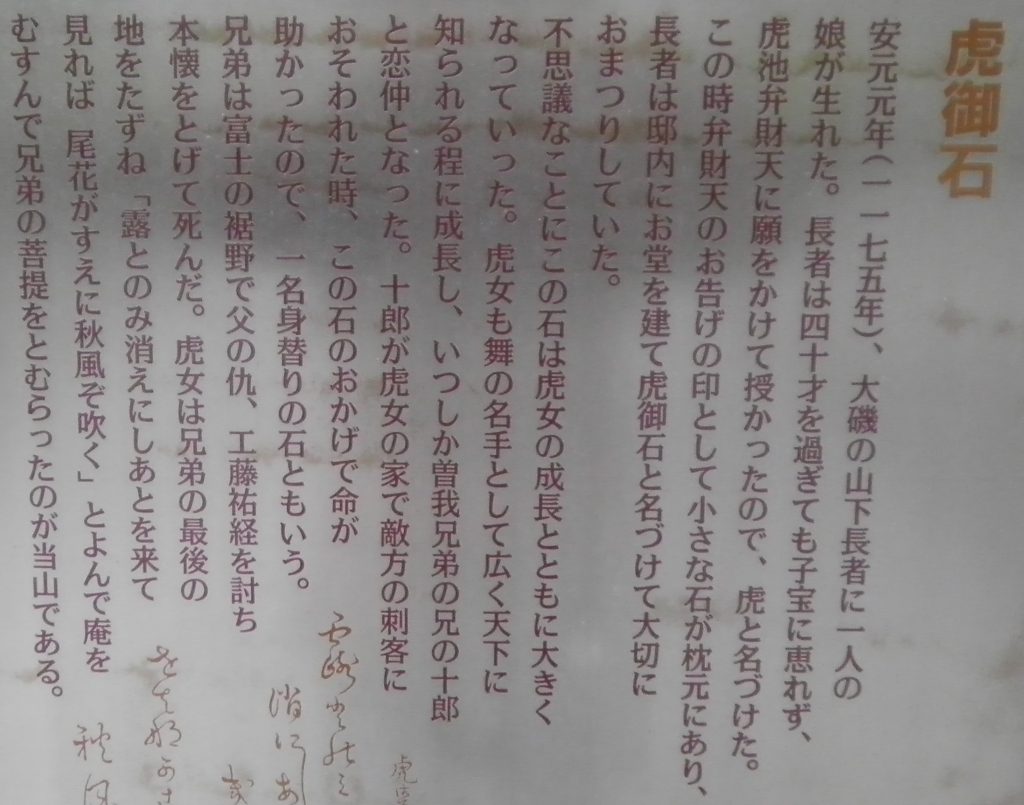 虎御石
安元元年(一一七五年)、大磯の山下長者に一人の
娘が生れた。長者は四十才を過ぎても子宝に恵れず、
虎池弁財天に願をかけて授かったので、虎と名づけた。
この時弁財天のお告げの印として小さな石が枕元にあり、
長者は邸内にお堂を建て虎御石と名づけて大切に
おまつりしていた。
不思議なことにこの石は虎女の成長とともに大きく
なっていった。虎女も舞の名手として広く天下に
知られる程に成長し、いつしか曽我兄弟の兄の十郎
と恋仲となった。十郎が虎女の家で敵方の刺客に
おそわれた時、この石のおかげで命が
助かったので、一名身替りの石ともいう。
兄弟は富士の裾野で父の仇、工藤祐経を討ち
本懐をとげて死んだ。虎女は兄弟の最後の
地をたずね「露とのみ消えにしあとを来て
見れば 尾花がすえに秋風ぞ吹く」とよんで庵を
むすんで兄弟の菩提をとむらったのが当山である。
虎
消にしあ
秋